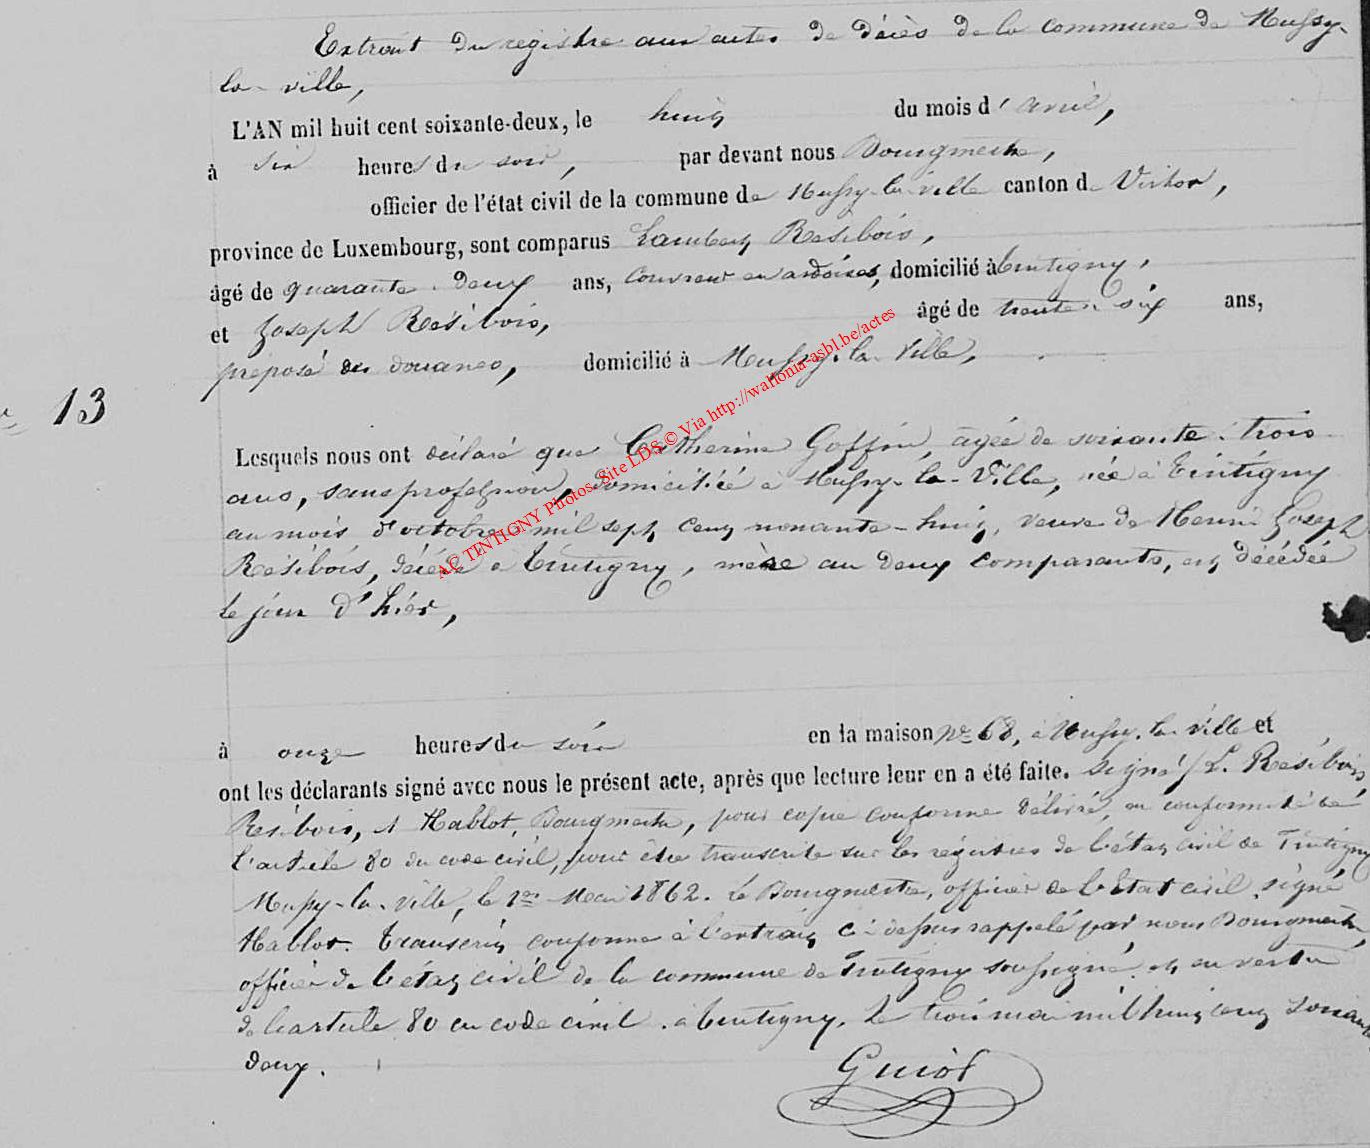 Extrait du registre aux actes de décès de la commune de Mussy-
la-ville,
L'AN mil huit cent soixante-deux, le huit du mois d'avril,
à six heures du soir, par devant nous Bourgmestre,
officier de l'état civil de la commune de Mussy-la-ville canton de Virton,
province de Luxembourg, sont comparus Lambert Résibois,
âgé de quarante-deux ans, couvreur en ardoises, domicilié à Tintigny,
et Joseph Résibois, âgé de trente-six ans,
préposé des douanes, domicilié à Mussy-la-Ville,
13
Lesquels nous ont déclaré que Catherine Goffin, âgée de soixante-trois
ans, sans profession, domiciliée à Mussy-la-Ville, née à Tintigny
au mois d'octobre mil sept cent nonante-huit, veuve de Henri Joseph
Résibois, décédé à Tintigny, mère au deux comparants, est décédée
le jour d'hier,
à onze heures du soir en la maison n° 68, à Mussy-la-ville et
ont les déclarants signé avec nous le présent acte, après que lecture leur en a été faite. Signé/ L. Résibois
Résibois, et Hablot, Bourgmestre, pour copie conforme délivré, en conformité de
l'article 80 du code civil, pour être transcrite sur les registres de l'état civil de Tintigny
Mussy-la-ville, le 1er Mai 1862. Le Bourgmestre, officier de l'Etat civil, signé
Hablot. Transcrit conforme à l'extrait ci-dessus rappelé par nous Bourgmestre,
officier de l'état civil de la commune de Tintigny soussigné, et en vertu
de l'article 80 du code civil. à Tintigny, le trois mai mil huit cent soixante
deux.
Guiot
AC TINTIGNY Photos. Site LDS © Via http://wallonia-asbl.be/actes